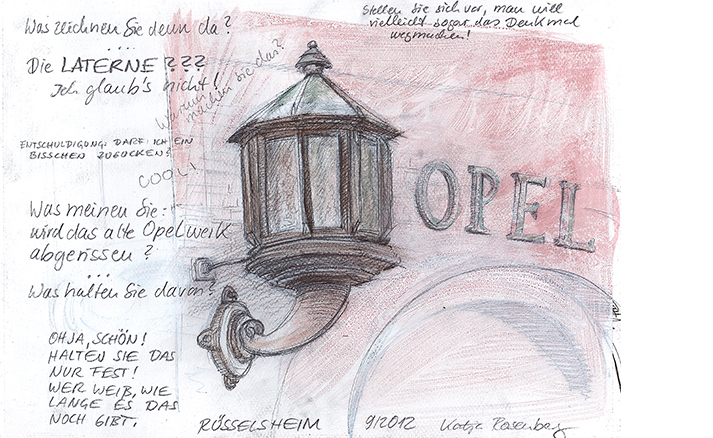 Was zeichnen Sie denn da?
....
Die LATERNE???
Ich glaub's nicht!
Warum
machen Sie das?
ENTSCHULDIGUNG: DARF ICH EIN
BISSCHEN ZUGUCKEN?
COOL!
Was meinen Sie:
wird das alte Opelwerk
abgerissen?
...
Was halten Sie davon?
OH JA, SCHÖN!
HALTEN SIE DAS
NUR FEST!
WER WEIß, WIE
LANGE ES DAS
NOCH GIBT.
Stellen Sie sich vor, man will
vielleicht sogar das Denkmal
wegmachen!
OPEL
RÜSSELSHEIM 9/2012 Katja Rosenberg